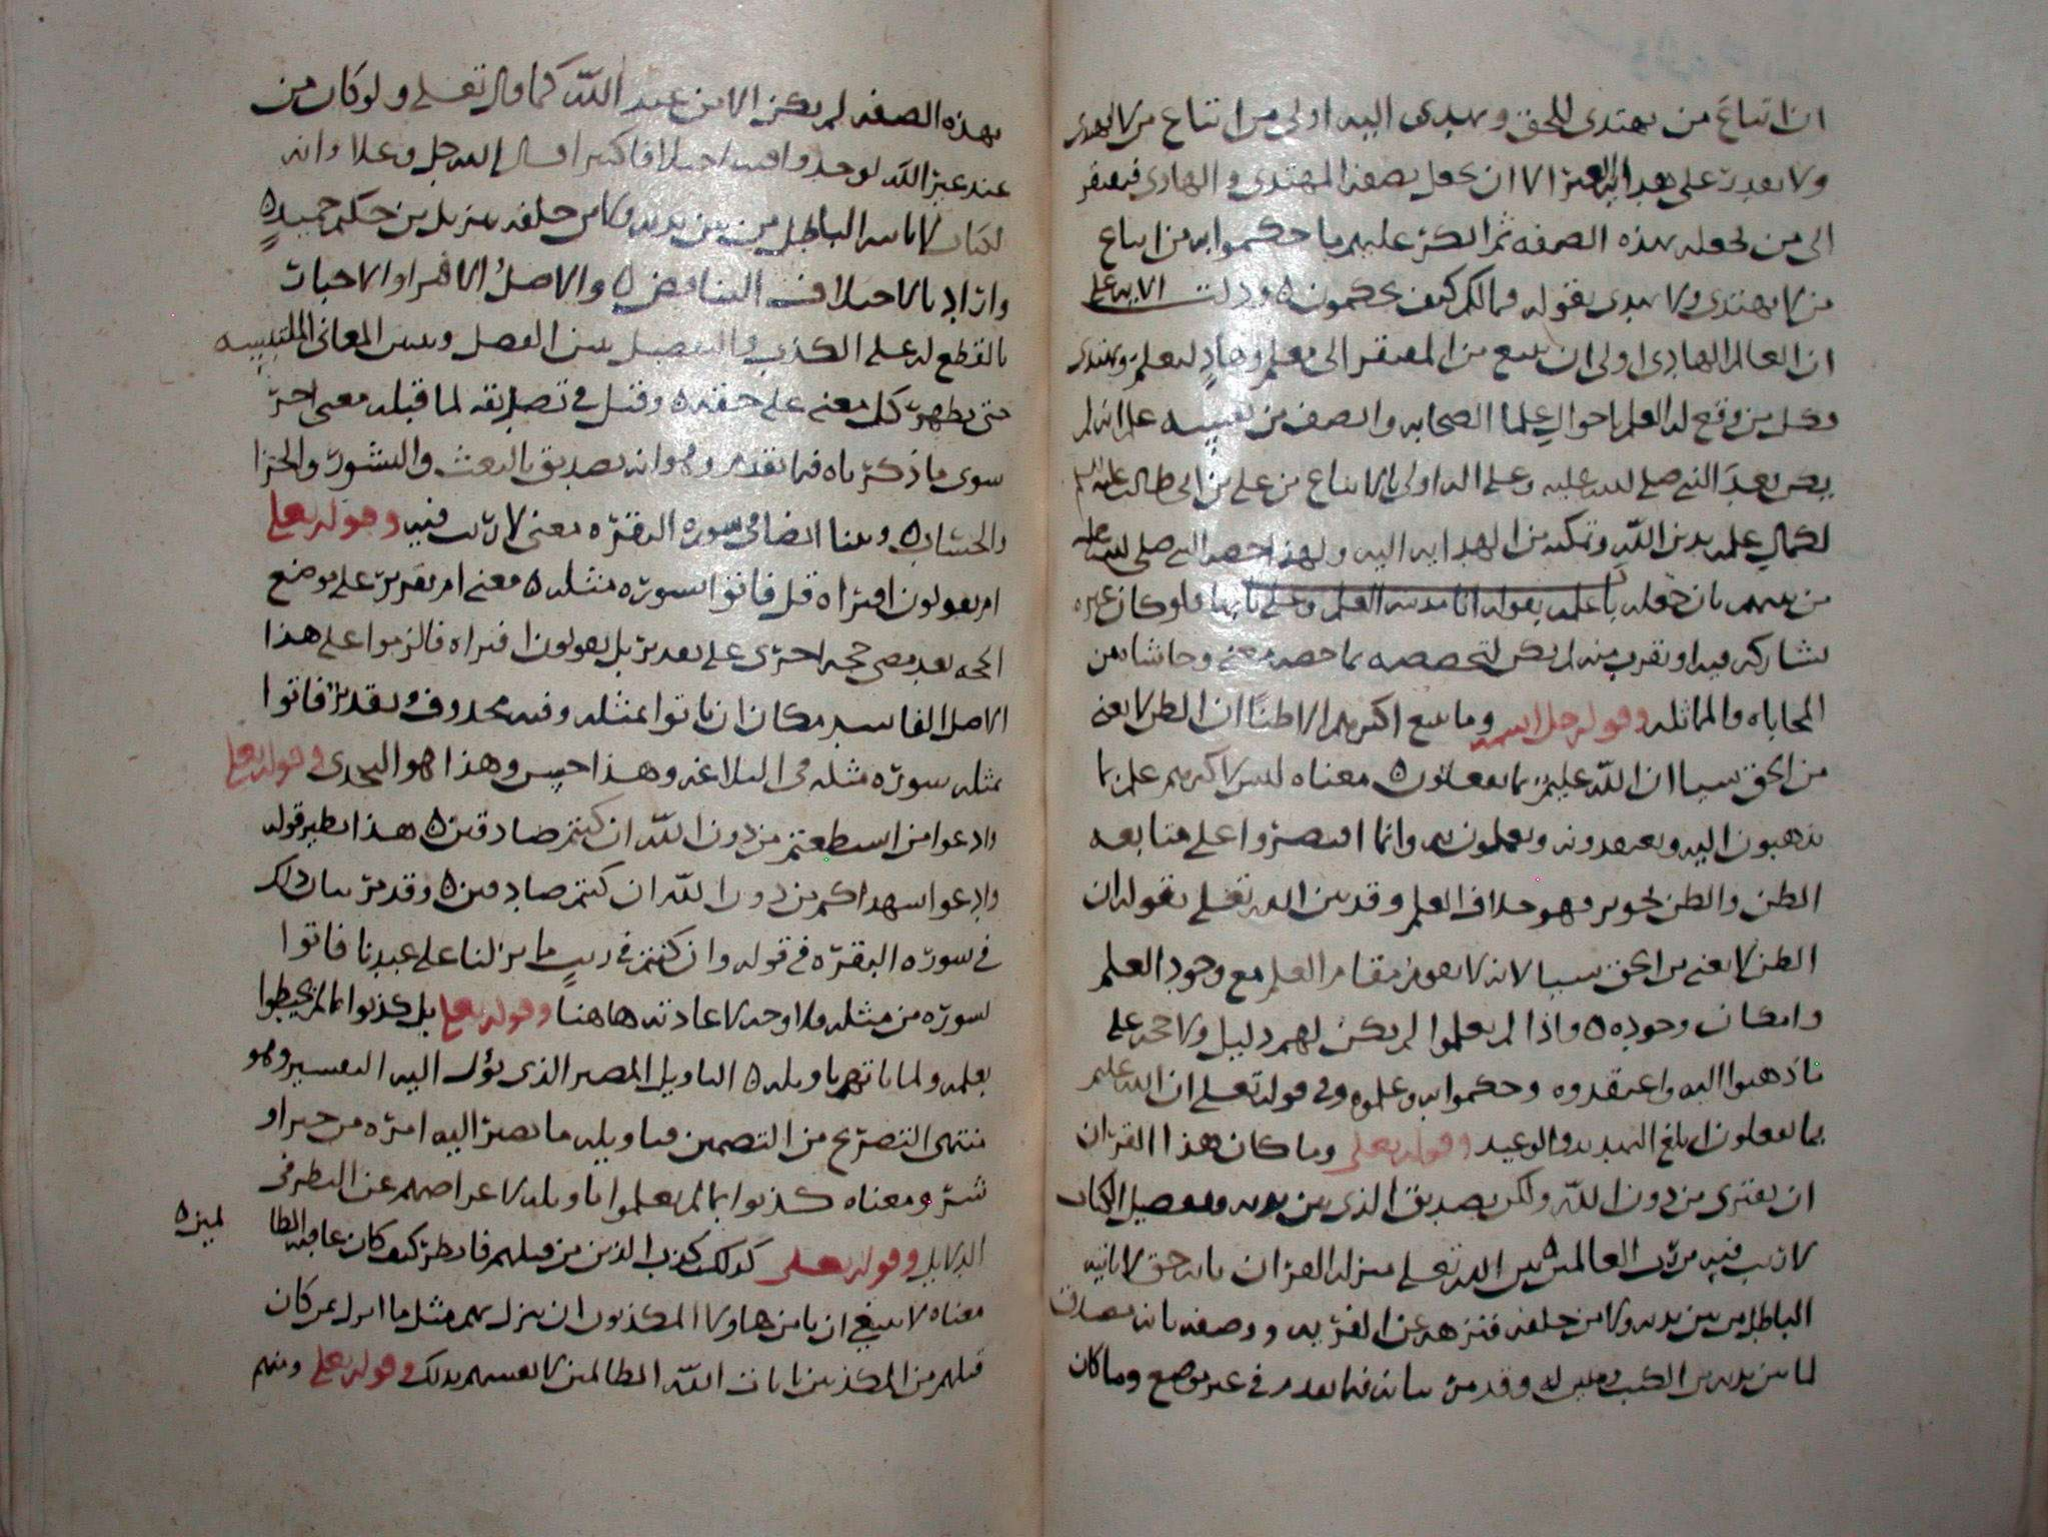 ان اتباع من يهتدي للحق ويهدي اليه اولى من اتباع من لا يهدي
ولا يقدر على هداية الغير الا ان يجعل بصفة المهتدي والهادي فيفتقر
الى من يجعله بهذه الصفه ثم انكر عليهم ما حكموا به من اتباع
من لا يهتدي ولا يهدي بقوله فمالكم كيف تحكمون ه ودلت الايه على
ان العالم الهادي اولى ان يتبع من المفتقر الى معلم وهاد ليعلم ويهتدي
وكل من وقع له العلم باحوال علما الصحابه وانصف من نفسه علم انه لم
يكن بعد النبي صلى الله عليه وعلى اله اولى بالاتباع من علي بن ابي طالب عليه السلم
لكمال علمه بدين الله وتمكنه من الهدايه اليه ولهذا خصه النبي صلى الله عليه
من بينهم بان جعله باب علمه بقوله انا مدينة العلم وعلي بابها فلو كان غيره
يشاركه فيه او يقرب منه لم يكن لتخصيصه بما خصه معنى وحاشاه من
المحاباه والمماثله وقوله جل اسمه وما يتبع اكثرهم الا ظنا ان الظن لا يغني
من الحق شيا ان الله عليم بما يفعلون ه معناه ليس لاكثرهم علم بما
يذهبون اليه ويعتقدونه ويعملون به وانما اقتصروا على متابعه
الظن والظن تجويز فهو خلاف العلم وقد بين الله تعلى بقوله ان
الظن لا يغني من الحق شيا لانه لا يقوم مقام العلم مع وجود العلم
وامكان وجوده ه واذا لم يعلموا لم يكن لهم دليل ولا حجه على
ما ذهبوا اليه واعتقدوه وحكموا به وعلموه وفي قوله تعلى ان الله عليم
بما يفعلون ابلغ التهديد والوعيد وقوله تعلى وما كان هذا القران
ان يفترى من دون الله ولكن تصديق الذي بين يديه وتفصيل الكتاب
لا ريب فيه من رب العالمين ه بين الله تعلى منزلة القران بانه حق لا ياتيه
الباطل من بين يديه ولا من خلفه فنزهه عن الفريه ووصفه بانه مصدق
لما بين يديه من الكتب له وقد مر بيانه فيما تقدم في غير موضع وما كان
بهذه الصفه لم يكن الا من عند الله كما قال تعلى ولو كان من
عند غير الله لوجدوا فيه اختلافا كثيرا قال الله جل وعلا وانه
لكتاب لا ياتيه الباطل من بين يديه ولا من خلفه تنزيل من حكيم حميد ه
واراد بالاختلاف التناقض ه والاصل الافترا والاخبات
بالقطع له على الكذب والتفصيل بين الفصل وبين المعاني الملتبسه
حتى يظهر كل معنى على حقه ه وقيل في تصديقه لما قبله معنى اخر
سوى ما ذكرناه فيما تقدم وهو انه تصديق بالبعث والنشور والجزا
والحساب ه وبينا ايضا في سورة البقره معنى لا ريب فيه وقوله تعلى
ام يقولون افتراه قل فاتوا بسوره مثله ه معنى ام تقرير على موضع
الحجه بعد مضي حجه اخرى على تقدير بل يقولون افتراه فالزموا على هذا
الاصل الفاسد مكان ان ياتوا بمثله وفيه محذوف وتقديره فاتوا
بمثله سوره مثله في البلاغه وهذا حسن وهذا هو التحدي وقوله تعلى
وادعوا من استطعتم من دون الله ان كنتم صادقين ه هذا نظير قوله
وادعوا شهداكم من دون الله ان كنتم صادقين ه وقد مر بيان ذلك
في سورة البقره في قوله وان كنتم في ريب مما نزلنا على عبدنا فاتوا
بسوره من مثله فلا وجه لاعادته هاهنا وقوله تعلى بل كذبوا بما لم يحيطوا
بعلمه ولما ياتهم تاويله ه التاويل المصير الذي يؤل اليه التفسير وهو
منتهى التصريح من التضمين فتاويله ما يصير اليه امره من خير او
شر ومعناه كذبوا بما لم يعلموا تاويله لاعراضهم عن النظر في
الدلايل وقوله تعلى كذلك كذب الذين من قبلهم فانظر كيف كان عاقبة الظا
لمين ه
معناه لا ينبغي ان يامن هاولا المكذبون ان ينزل بهم مثل ما انزل بمن كان
قبلهم من المكذبين بايات الله الظالمين لانفسهم بذلك وقوله تعلى ومنهم